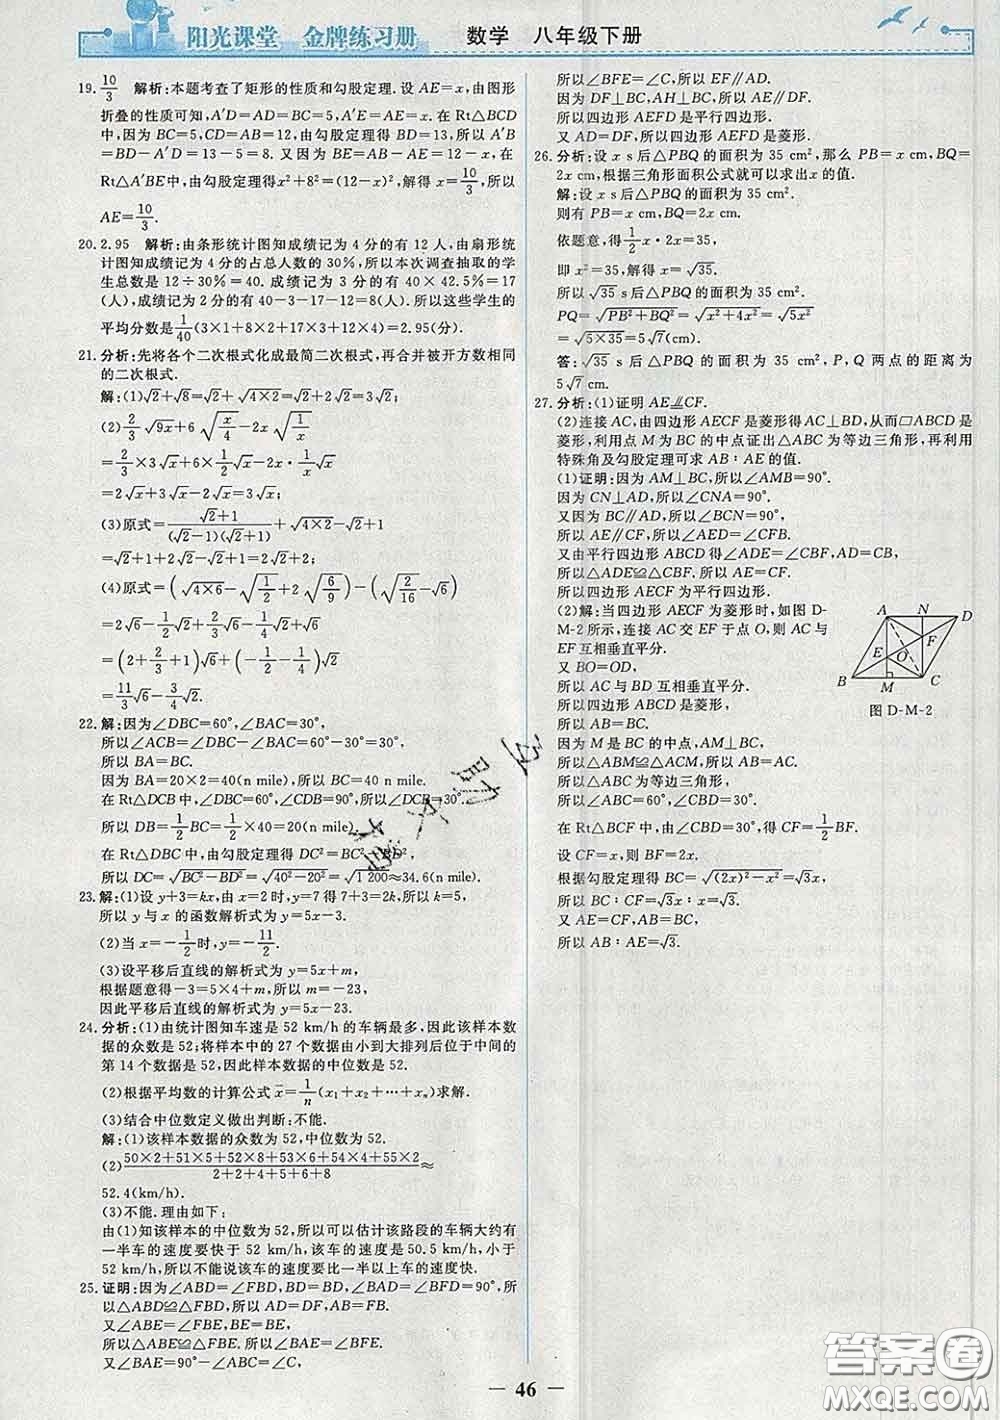 阳光课堂 金牌练习册 数学 八年级下册
19. 10/3 解析:本题考查了矩形的性质和勾股定理.设 AE=x,由图形
折叠的性质可知,A′D=AD=BC=5,A′E=AE=x.在 Rt△BCD
中,因为 BC=5,CD=AB=12,由勾股定理得 BD=13,所以 A′B
=BD-A′D=13-5=8.又因为 BE=AB-AE=12-x,在
Rt△A′BE中,由勾股定理得x²+8²=(12-x)²,解得 x=10/3,所以
AE=10/3.
20. 2.95 解析:由条形统计图知成绩记为 4 分的有 12 人,由扇形统
计图知成绩记为 4 分的占总人数的 30%,所以本次调查抽取的学
生总数是 12÷30%=40.成绩记为 3 分的有 40×42.5%=17
(人),成绩记为 2 分的有 40-3-17-12=8(人).所以这些学生的
平均分数是 1/40(3×1+8×2+17×3+12×4)=2.95(分).
21. 分析:先将各个二次根式化成最简二次根式,再合并被开方数相同
的二次根式.
解:(1)√2+√8=√2+√(4×2)=√2+2√2=3√2;
(2) 2/3 √(9x)+6√(x/4)-2x√(1/x)
=2/3×3√x+6×1/2√x-2x·1/x√x
=2√x+3√x-2√x=3√x;
(3)原式=(√2+1)/((√2-1)(√2+1))+√(4×2)-√2+1
=√2+1+2√2-√2+1=2√2+2;
(4)原式=(√(4×6)-√(1/2)+2√(6/9))-(√(2/16)-√6)
=2√6-1/2√2+2/3√6-1/4√2+√6
=(2+2/3+1)√6+(-1/2-1/4)√2
=11/3√6-3/4√2.
22. 解:因为∠DBC=60°,∠BAC=30°,
所以∠ACB=∠DBC-∠BAC=60°-30°=30°,
所以 BA=BC.
因为 BA=20×2=40(n mile),所以 BC=40(n mile).
在 Rt△DCB 中,∠DBC=60°,∠BDC=90°,所以∠DCB=30°.
所以 DB=1/2BC=1/2×40=20(n mile).
在 Rt△DBC 中,由勾股定理得 DC²=BC²-BD²,
所以 DC=√(BC²-BD²)=√(40²-20²)=√(1 200)≈34.6(n mile).
23. 解:(1)设 y+3=kx,由 x=2时,y=7 得 7+3=2k,所以 k=5,
所以 y 与 x 的函数解析式为 y=5x-3.
(2)当 x=-1/2时,y=-11/2.
(3)设平移后直线的解析式为 y=5x+m,
根据题意得-3=5×4+m,所以 m=-23,
因此平移后直线的解析式为 y=5x-23.
24. 分析:(1)由统计图知车速是 52 km/h 的车辆最多,因此该样本数
据的众数是 52;将样本中的 27 个数据由小到大排列后位于中间的
第 14 个数据是 52,因此样本数据的中位数是 52.
(2)根据平均数的计算公式 x̄=1/n(x₁+x₂+…+xₙ)求解.
(3)结合中位数定义做出判断:不能.
解:(1)该样本数据的众数为 52,中位数为 52.
(2)(50×2+51×5+52×8+53×6+54×4+55×2)/(2+2+5+6+8)≈
52.4(km/h).
(3)不能.理由如下:
由(1)知该样本的中位数为 52,所以可以估计该路段的车辆大约有
一半车的速度要快于 52 km/h,该车的速度是 50.5 km/h,小于
52 km/h,所以不能说该车的速度要比一半以上车的速度快.
25. 证明:因为∠ABD=∠FBD,BD=BD,∠BAD=∠BFD=90°,所
以△ABD≌△FBD,所以 AD=DF,AB=FB.
又∠ABE=∠FBE,BE=BE,
所以△ABE≌△FBE.所以∠BAE=∠BFE.
又∠BAE=90°-∠CAF=∠C,
所以∠BFE=∠C,所以 EF∥AD.
因为 DF⊥BC,AH⊥BC,所以 AE∥DF.
所以四边形 AEFD 是平行四边形.
又 AD=DF,所以四边形 AEFD 是菱形.
26. 分析:设 x s 后△PBQ 的面积为 35 cm²,那么 PB=x cm,BQ=
2x cm,根据三角形面积公式就可以求出 x 的值.
解:设 x s 后△PBQ 的面积为 35 cm².
则有 PB=x cm,BQ=2x cm.
依题意,得1/2x·2x=35,
即 x²=35,解得 x=√35.
所以√35 s后△PBQ 的面积为 35 cm².
PQ=√(PB²+BQ²)=√(x²+4x²)=√(5x²)
=√(5×35)=5√7(cm).
答:√35 s 后△PBQ 的面积为 35 cm²,P,Q 两点的距离为
5√7 cm.
27. 分析:(1)证明 AE∥CF.
(2)连接 AC,由四边形 AECF 是菱形得 AC⊥BD,从而□ABCD 是
菱形,利用点 M 为 BC 的中点证出△ABC 为等边三角形,再利用
特殊角及勾股定理可求 AB∶AE 的值.
(1)证明:因为 AM⊥BC,所以∠AMB=90°.
因为 CN⊥AD,所以∠CNA=90°.
又因为 BC∥AD,所以∠BCN=90°.
所以 AE∥CF,所以∠AED=∠CFB.
又由平行四边形 ABCD 得∠ADE=∠CBF,AD=CB,
所以△ADE≌△CBF.所以 AE=CF.
所以四边形 AECF 为平行四边形.
(2)解:当四边形 AECF 为菱形时,如图 D-
M-2 所示,连接 AC 交 EF 于点 O,则 AC 与
EF 互相垂直平分.
又 BO=OD,
所以 AC 与 BD 互相垂直平分.
所以四边形 ABCD 是菱形.
所以 AB=BC.
因为 M 是 BC 的中点,AM⊥BC,
所以△ABM≌△ACM,所以 AB=AC.
所以△ABC 为等边三角形,
所以∠ABC=60°,∠CBD=30°.
在 Rt△BCF 中,由∠CBD=30°,得 CF=1/2BF.
设 CF=x,则 BF=2x.
根据勾股定理得 BC=√((2x)²-x²)=√3x,
所以 BC∶CF=√3x∶x=√3.
又 AE=CF,AB=BC,
所以 AB∶AE=√3.
A N D
F
E O
B M C
图 D-M-2
46
答案圈
MXQE.COM